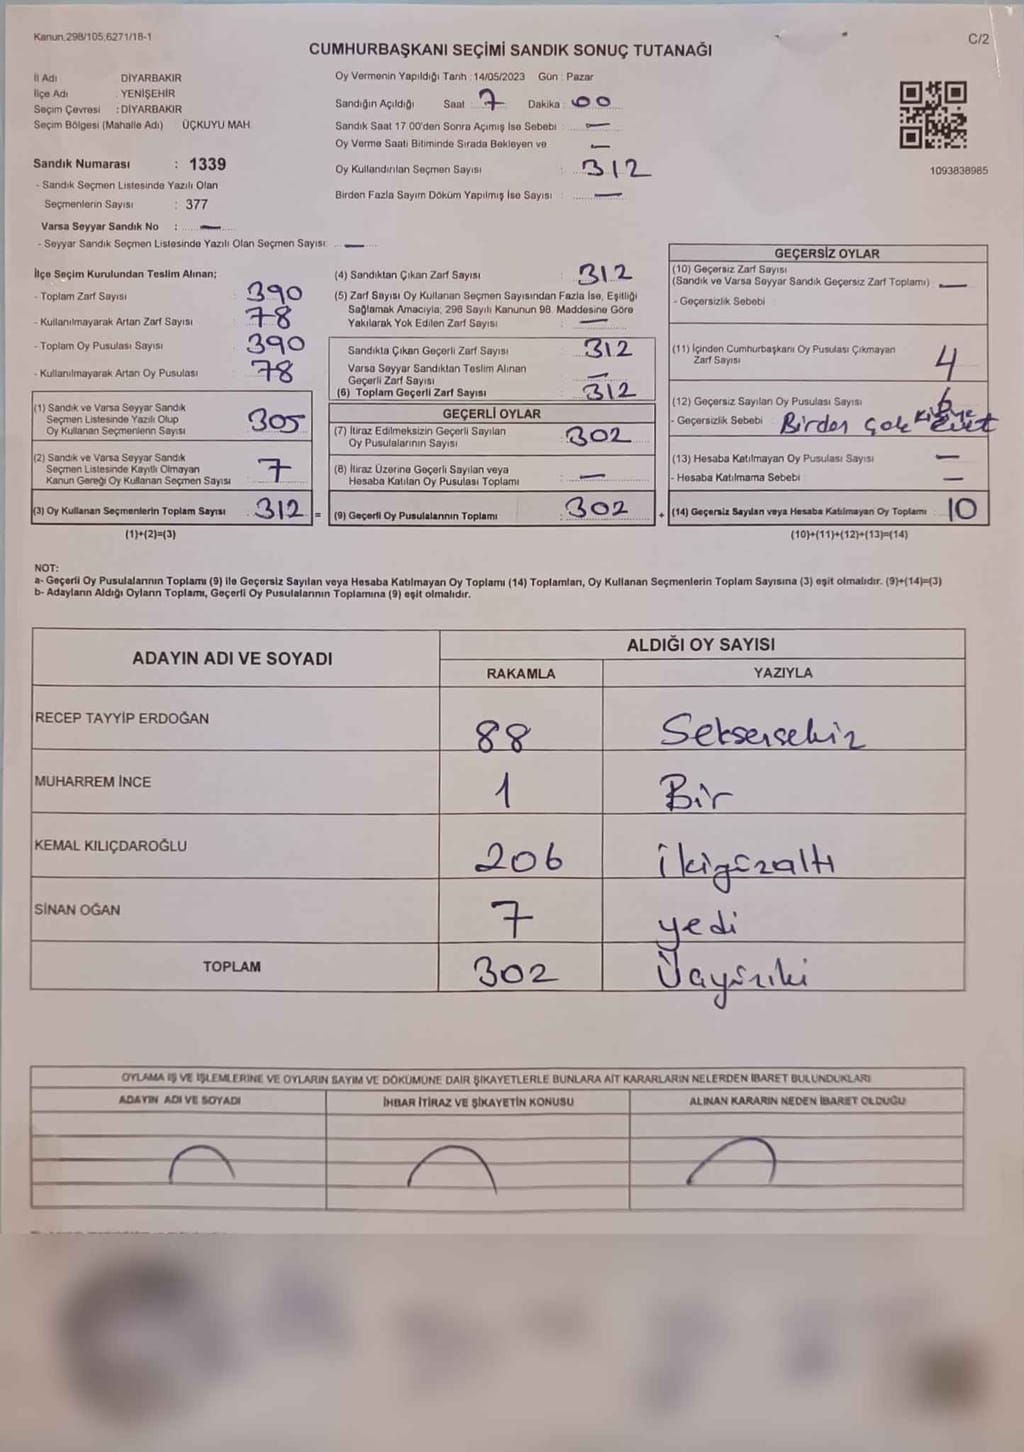 Kanun.298/105,6271/18-1
C/2
CUMHURBAŞKANI SEÇİMİ SANDIK SONUÇ TUTANAĞI
İl Adı DİYARBAKIR
İlçe Adı : YENİŞEHİR
Seçim Çevresi : DİYARBAKIR
Seçim Bölgesi (Mahalle Adı) ÜÇKUYU MAH.
Sandık Numarası : 1339
- Sandık Seçmen Listesinde Yazılı Olan
Seçmenlerin Sayısı : 377
Varsa Seyyar Sandık No : —
- Seyyar Sandık Seçmen Listesinde Yazılı Olan Seçmen Sayısı: —
Oy Vermenin Yapıldığı Tarih : 14/05/2023 Gün : Pazar
Sandığın Açıldığı Saat : 7 Dakika : 00
Sandık Saat 17.00'den Sonra Açımış İse Sebebi : —
Oy Verme Saati Bitiminde Sırada Bekleyen ve —
Oy Kullandırılan Seçmen Sayısı : 312
Birden Fazla Sayım Döküm Yapılmış İse Sayısı : —
1093838985
İlçe Seçim Kurulundan Teslim Alınan;
- Toplam Zarf Sayısı : 390
- Kullanılmayarak Artan Zarf Sayısı : 78
- Toplam Oy Pusulası Sayısı : 390
- Kullanılmayarak Artan Oy Pusulası : 78
(1) Sandık ve Varsa Seyyar Sandık
Seçmen Listesinde Yazılı Olup
Oy Kullanan Seçmenlerin Sayısı 305
(2) Sandık ve Varsa Seyyar Sandık
Seçmen Listesinde Kayıtlı Olmayan
Kanun Gereği Oy Kullanan Seçmen Sayısı 7
(3) Oy Kullanan Seçmenlerin Toplam Sayısı 312 =
(1)+(2)=(3)
(4) Sandıktan Çıkan Zarf Sayısı : 312
(5) Zarf Sayısı Oy Kullanan Seçmen Sayısından Fazla İse, Eşitliği
Sağlamak Amacıyla, 298 Sayılı Kanunun 98. Maddesine Göre
Yakılarak Yok Edilen Zarf Sayısı : —
Sandıkta Çıkan Geçerli Zarf Sayısı 312
Varsa Seyyar Sandıktan Teslim Alınan
Geçerli Zarf Sayısı —
(6) Toplam Geçerli Zarf Sayısı 312
GEÇERLİ OYLAR
(7) İtiraz Edilmeksizin Geçerli Sayılan
Oy Pusulalarının Sayısı 302
(8) İtiraz Üzerine Geçerli Sayılan veya
Hesaba Katılan Oy Pusulası Toplamı —
(9) Geçerli Oy Pusulalarının Toplamı 302 +
GEÇERSİZ OYLAR
(10) Geçersiz Zarf Sayısı
(Sandık ve Varsa Seyyar Sandık Geçersiz Zarf Toplamı) : —
- Geçersizlik Sebebi
(11) İçinden Cumhurbaşkanı Oy Pusulası Çıkmayan
Zarf Sayısı 4
(12) Geçersiz Sayılan Oy Pusulası Sayısı 6
- Geçersizlik Sebebi : Birden çok kişiye evet
(13) Hesaba Katılmayan Oy Pusulası Sayısı —
- Hesaba Katılmama Sebebi : —
(14) Geçersiz Sayılan veya Hesaba Katılmayan Oy Toplamı 10
(10)+(11)+(12)+(13)=(14)
NOT:
a- Geçerli Oy Pusulalarının Toplamı (9) ile Geçersiz Sayılan veya Hesaba Katılmayan Oy Toplamı (14) Toplamları, Oy Kullanan Seçmenlerin Toplam Sayısına (3) eşit olmalıdır. (9)+(14)=(3)
b- Adayların Aldığı Oyların Toplamı, Geçerli Oy Pusulalarının Toplamına (9) eşit olmalıdır.
ADAYIN ADI VE SOYADI ALDIĞI OY SAYISI
RAKAMLA YAZIYLA
RECEP TAYYİP ERDOĞAN 88 Seksensekiz
MUHARREM İNCE 1 Bir
KEMAL KILIÇDAROĞLU 206 ikiyüzaltı
SİNAN OĞAN 7 yedi
TOPLAM 302 Üçyüziki
OYLAMA İŞ VE İŞLEMLERİNE VE OYLARIN SAYIM VE DÖKÜMÜNE DAİR ŞİKAYETLERLE BUNLARA AİT KARARLARIN NELERDEN İBARET BULUNDUKLARI
ADAYIN ADI VE SOYADI İHBAR İTİRAZ VE ŞİKAYETİN KONUSU ALINAN KARARIN NEDEN İBARET OLDUĞU